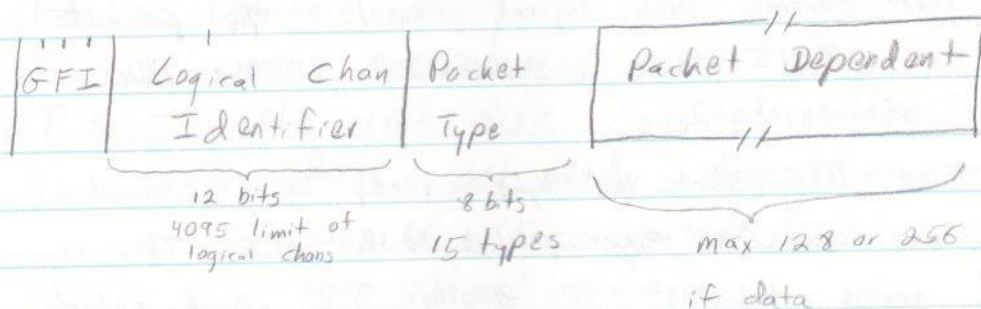 GFI
Logical Chan
Identifier
Packet
Type
Packet Dependent
12 bits
4095 limit of
logical chans
8 bits
15 types
max 128 or 256
if data